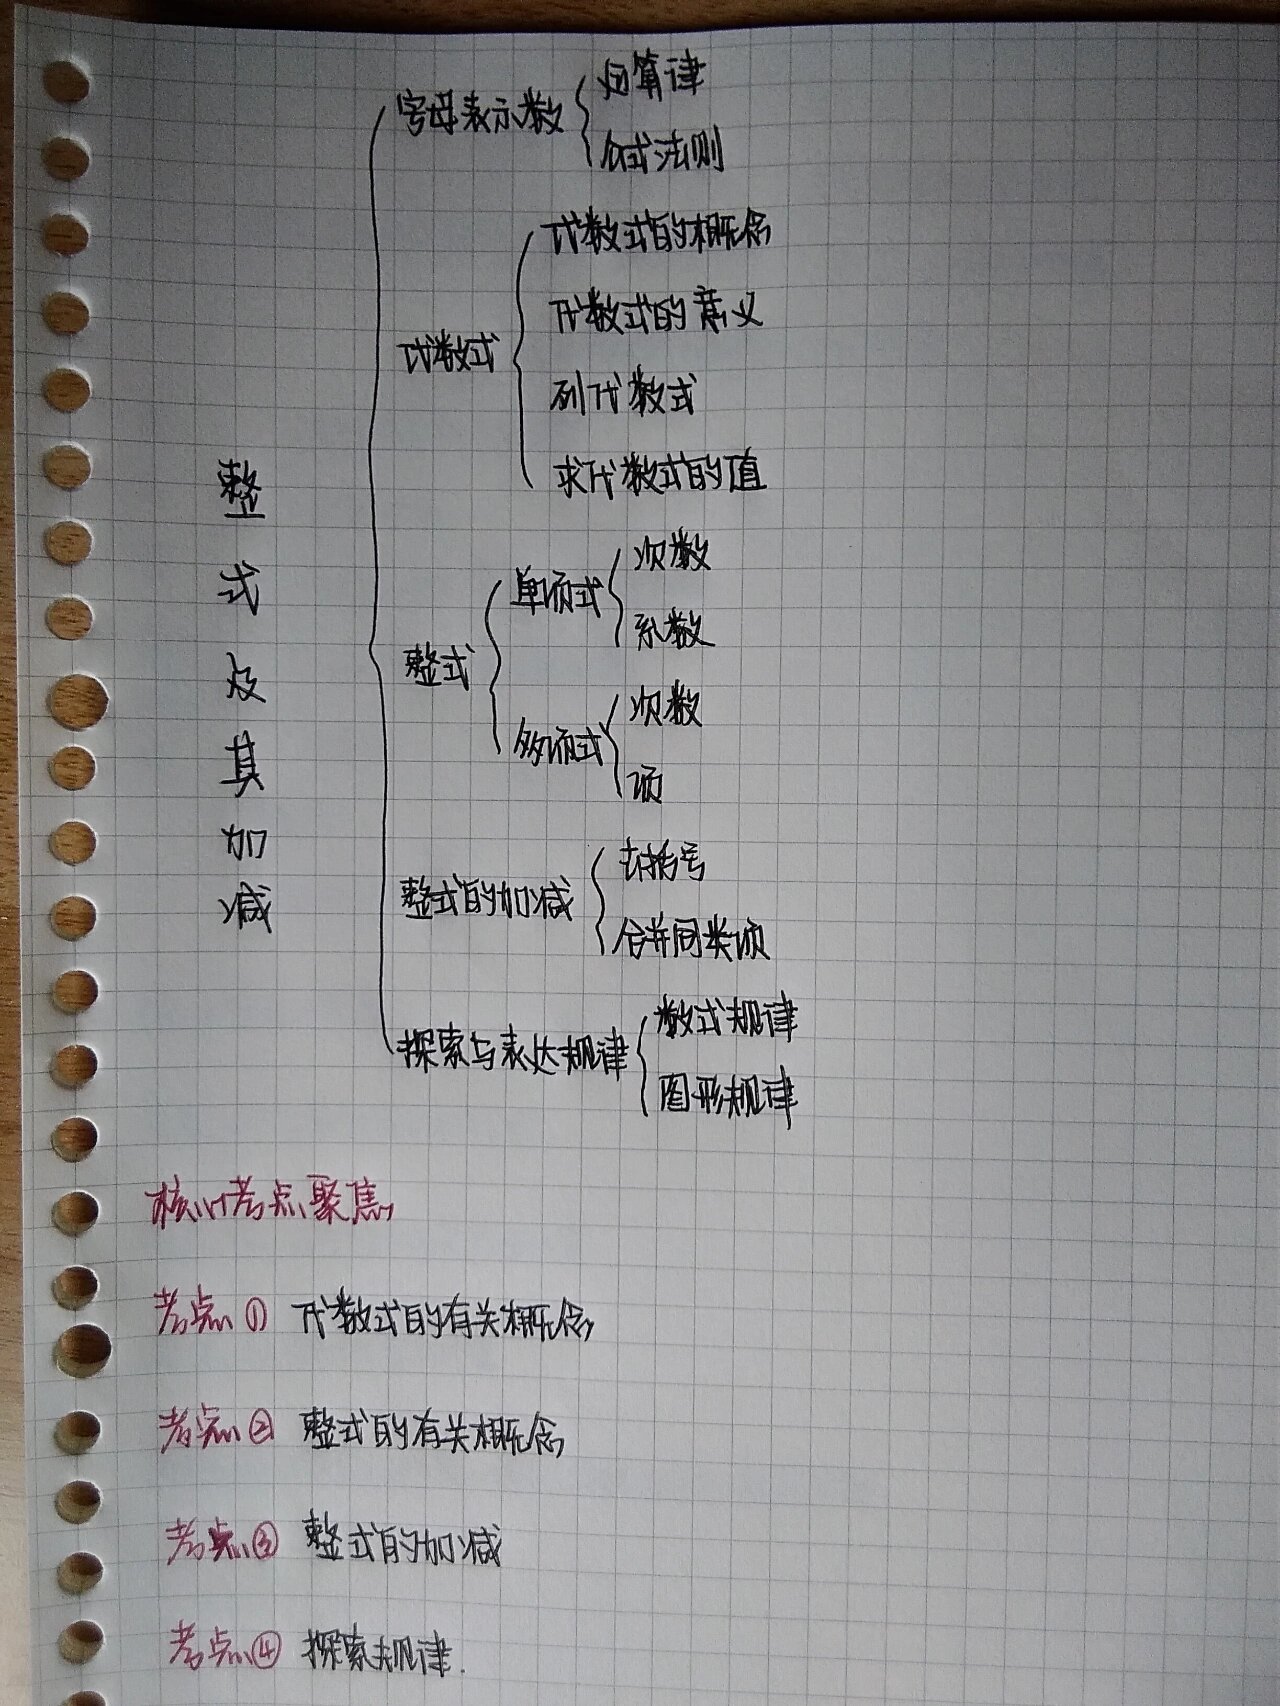 字母表示数
运算律
公式法则
代数式
代数式的概念
代数式的意义
列代数式
求代数式的值
整式及其加减
整式
单项式
次数
系数
多项式
次数
项
整式的加减
去括号
合并同类项
探索与表达规律
数式规律
图形规律
核心考点聚焦
考点① 代数式的有关概念
考点② 整式的有关概念
考点③ 整式的加减
考点④ 探索规律.